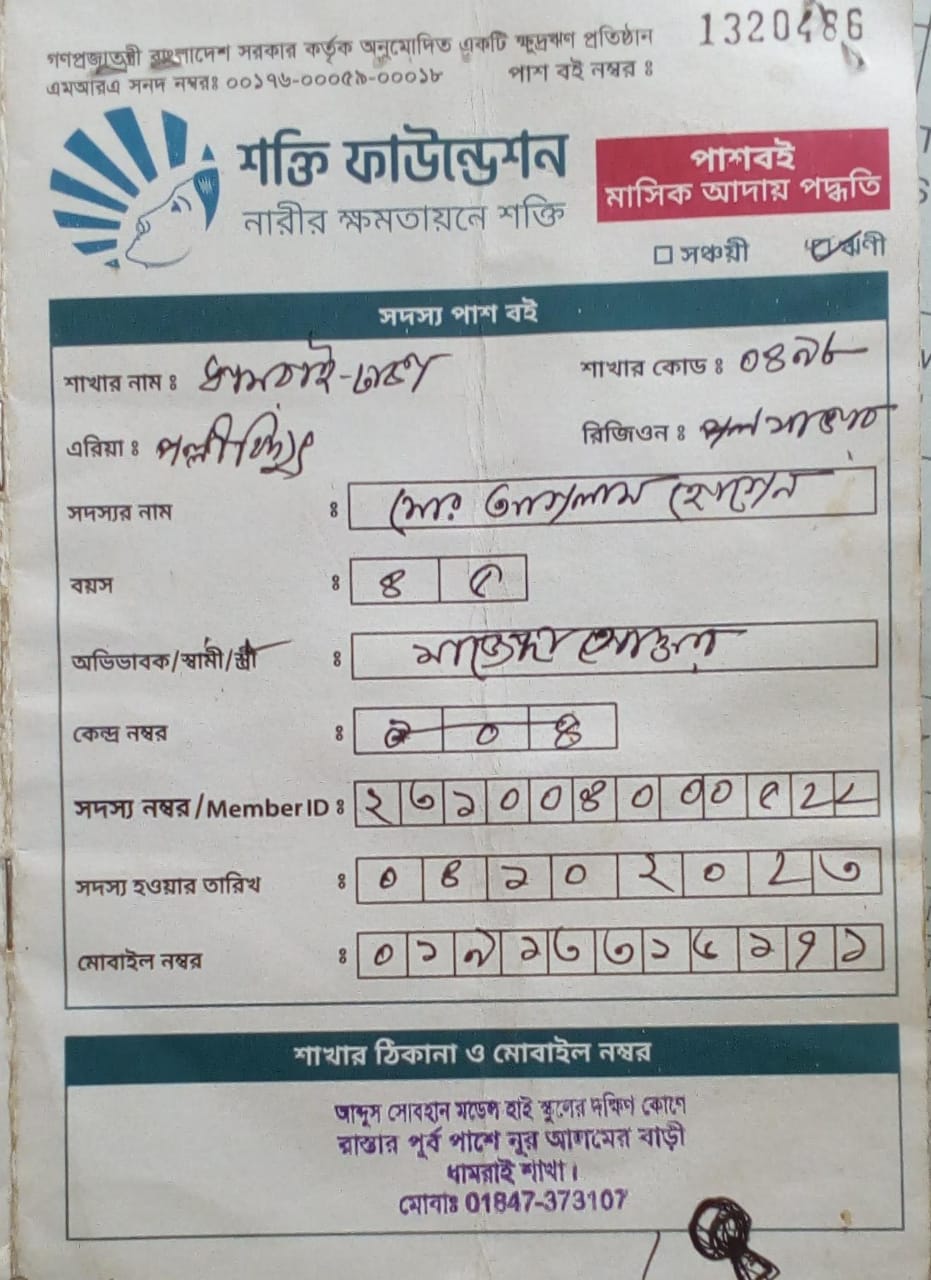 1320486
গণপ্রজাতন্ত্রী বাংলাদেশ সরকার কর্তৃক অনুমোদিত একটি ক্ষুদ্রঋণ প্রতিষ্ঠান
এমআরএ সনদ নম্বরঃ ০০১৭৬-০০০৫৯-০০০১৮ পাশ বই নম্বর ঃ
শক্তি ফাউন্ডেশন
নারীর ক্ষমতায়নে শক্তি
পাশবই
মাসিক আদায় পদ্ধতি
সঞ্চয়ী ঋণী
সদস্য পাশ বই
শাখার নাম ঃ ধামরাই-ঢাকা শাখার কোড ঃ ০৪৯৮
এরিয়া ঃ রিজিওন ঃ
সদস্যর নাম ঃ হোসেন
বয়স ঃ ৪৫
অভিভাবক/স্বামী/স্ত্রী ঃ
কেন্দ্র নম্বর ঃ ০৪
সদস্য নম্বর/Member ID ঃ
সদস্য হওয়ার তারিখ ঃ ০৪১০২০২৩
মোবাইল নম্বর ঃ
শাখার ঠিকানা ও মোবাইল নম্বর
আব্দুস সোবহান মডেল হাই স্কুলের দক্ষিণ কোণে
রাস্তার পূর্ব পাশে নূর আলমের বাড়ী
ধামরাই শাখা।
মোবাঃ 01847-373107